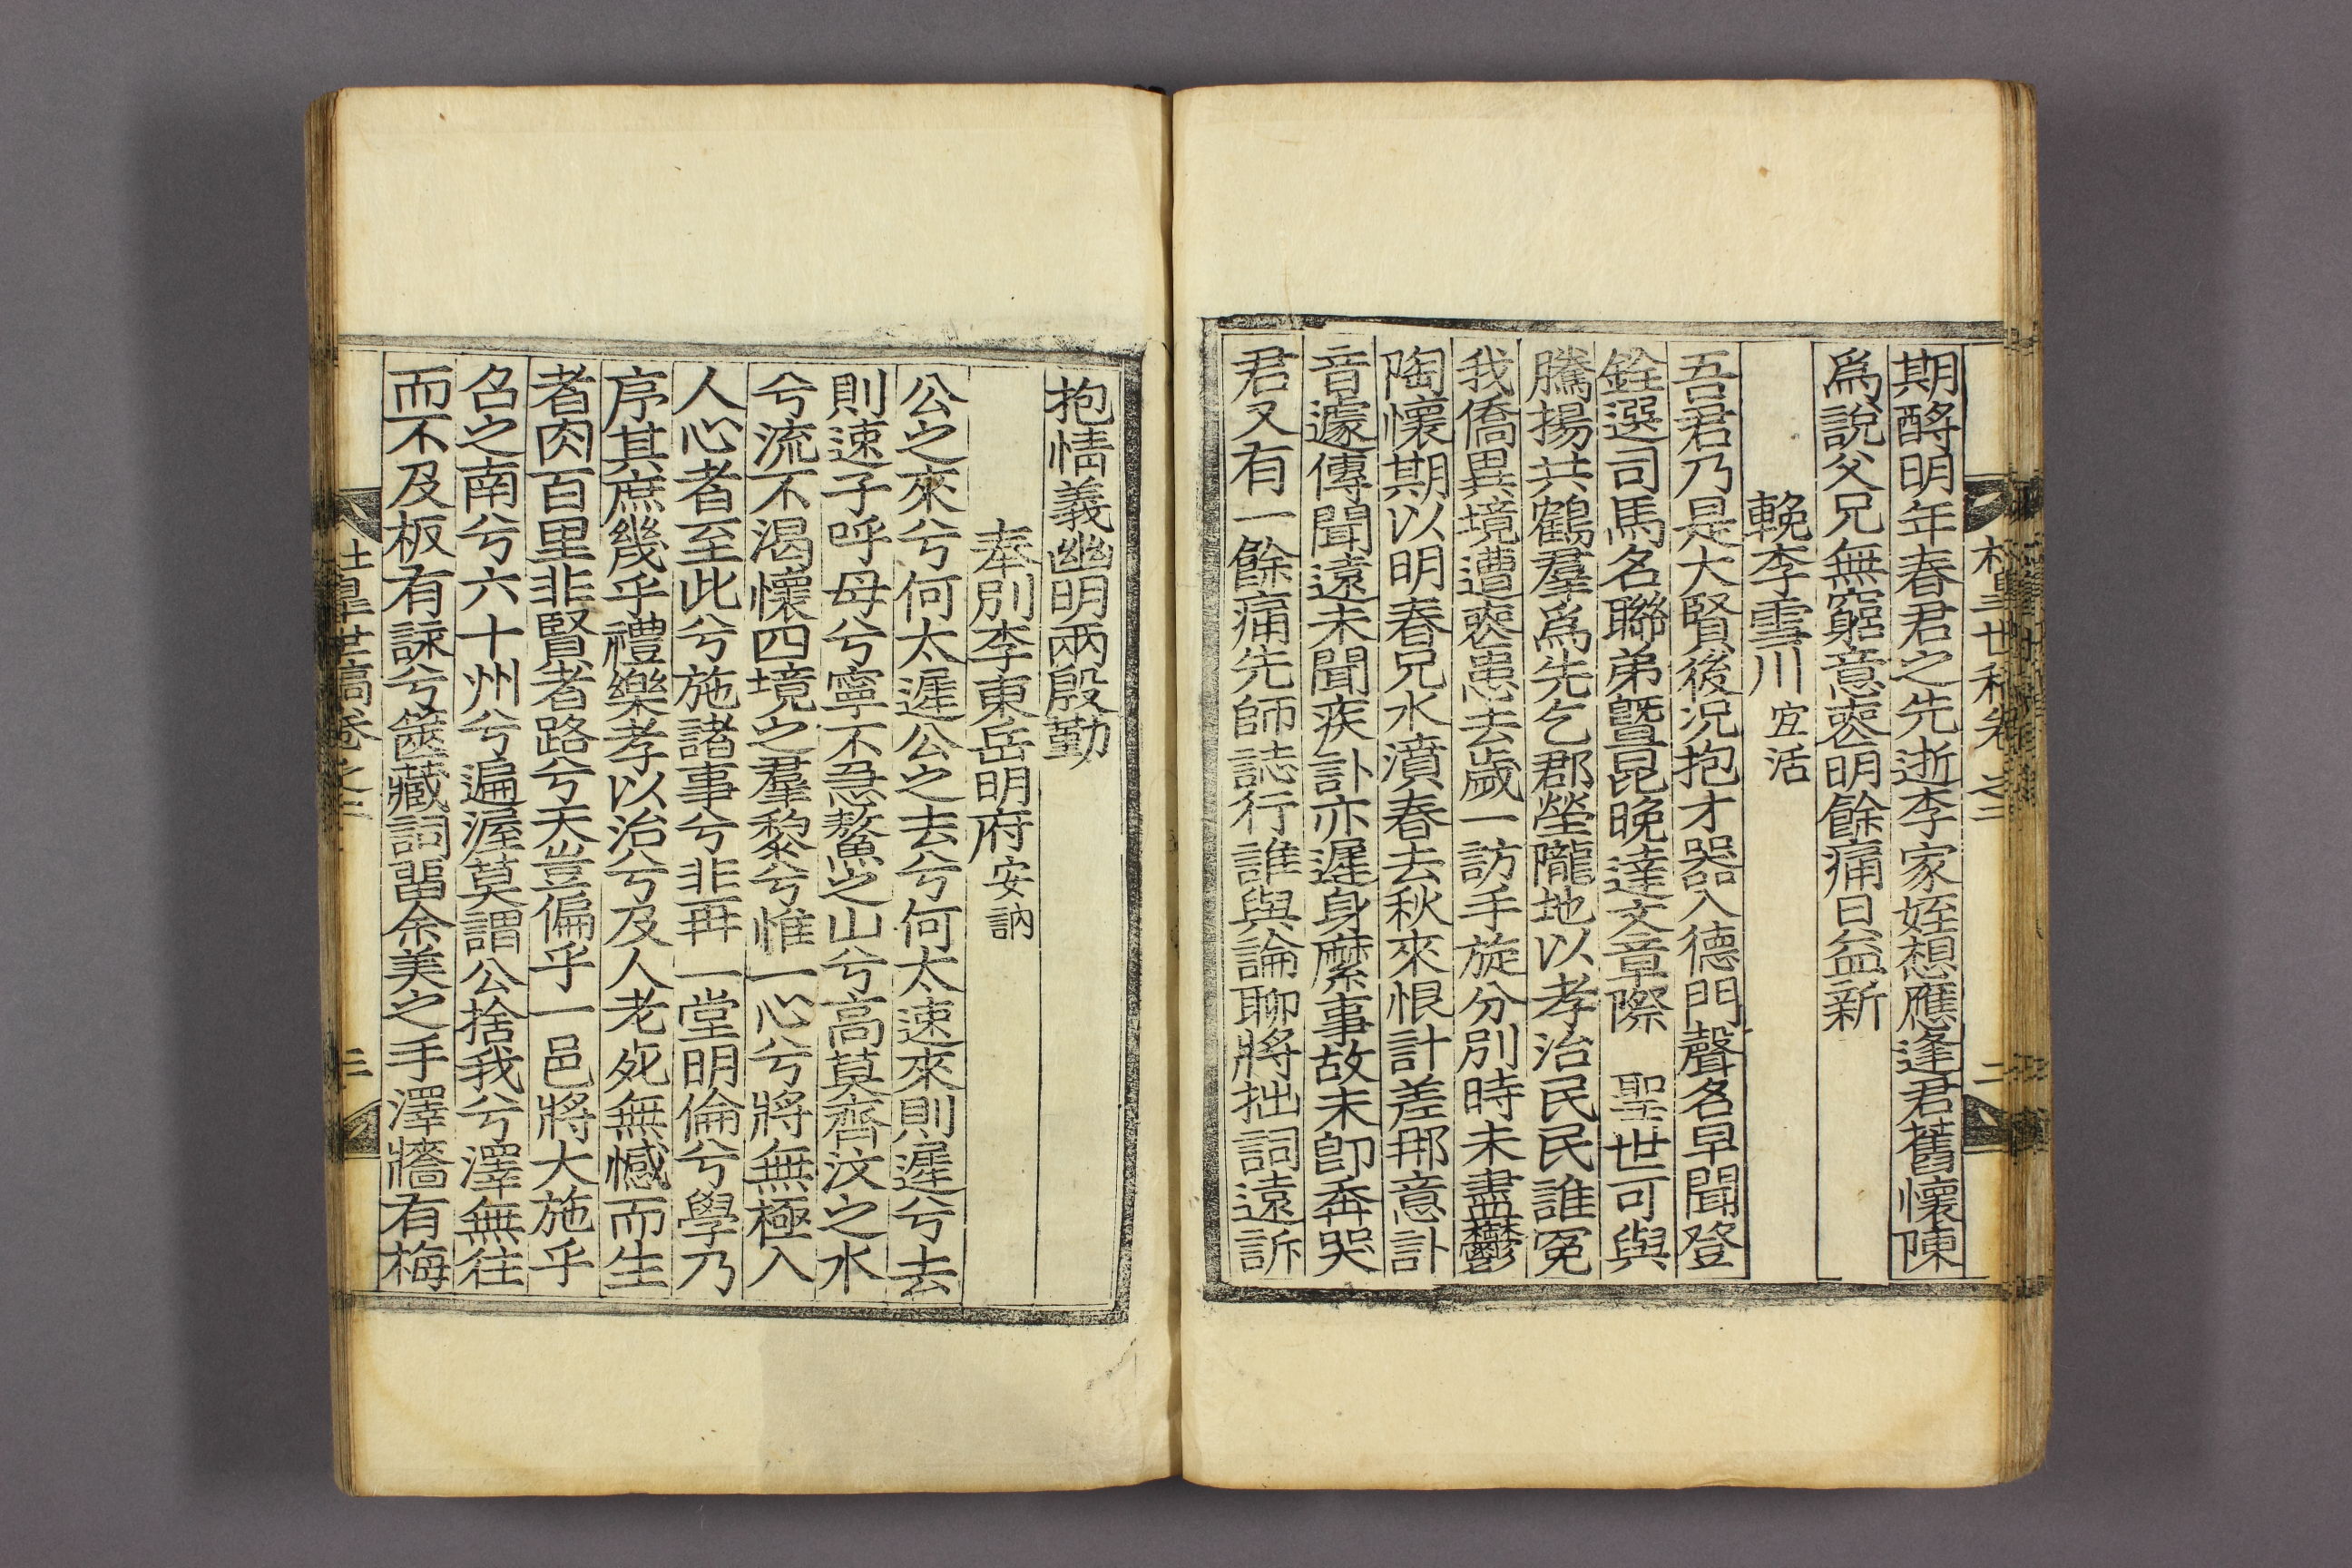 期酹明年春君之先逝李家姪想應逢君舊懷陳
爲說父兄無窮意喪明餘痛日益新
輓李雪川宜活
吾君乃是大賢後況抱才器入德門聲名早聞登
銓選司馬名聯弟曁昆晩達文章際 聖世可與
騰揚共鶴羣爲先乞郡塋隴地以孝治民民誰寃
我僑異境遭喪患去歲一訪手旋分別時未盡鬱
陶懷期以明春兄水濆春去秋來恨計差那意訃
音遽傳聞遠未聞疾訃亦遲身縻事故未卽奔哭
君又有一餘痛先師誌行誰與論聊將拙詞遠訴
抱情義幽明兩殷勤
奉別李東岳明府安訥
公之來兮何太遲公之去兮何太速來則遲兮去
則速子呼母兮寧不急鰲之山兮高莫齊汶之水
兮流不渴懷四境之羣黎兮惟一心兮將無極入
人心者至此兮施諸事兮非再一堂明倫兮學乃
序其庶幾乎禮樂孝以治兮及人老死無憾而生
者肉百里非賢者路兮天豈偏乎一邑將大施乎
召之南兮六十州兮遍渥莫謂公捨我兮澤無往
而不及板有詠兮篋藏詞留余美之手澤牆有梅
世稿卷之三
三